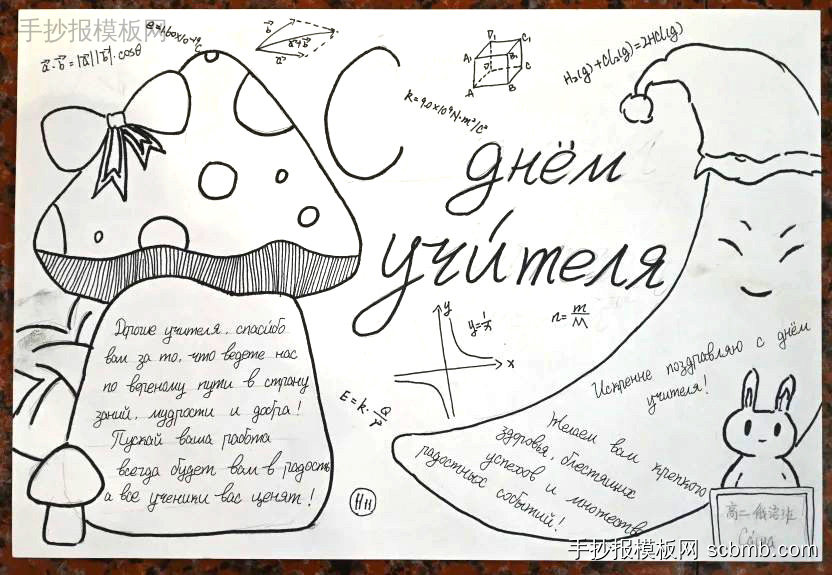 手抄报模板网
e=1.60×10⁻¹⁹C
a⃗·b⃗=|a⃗||b⃗|·cosθ
b⃗
a⃗+b⃗
a⃗
D₁ C₁
A₁ B₁
D C
A B
k=9.0×10⁹N·m²/C²
H₂(g)+Cl₂(g)=2HCl(g)
С
днём
учи́теля
y
y=1/x
x
n=m/M
E=k·Q/r²
Дорогие учителя, спасибо
вам за то, что ведете нас
по верному пути в страну
заний, мудрости и добра!
Пускай ваша работа
всегда будет вам в радость
а все ученики вас ценят!
Искренне поздравляю с днём
учителя!
Желаем вам крепкого
здоровья, блестящих
успехов и множеств
радостных событий!
Нн
高二俄语班
Са́ша
手抄报模板网 scbmb.com